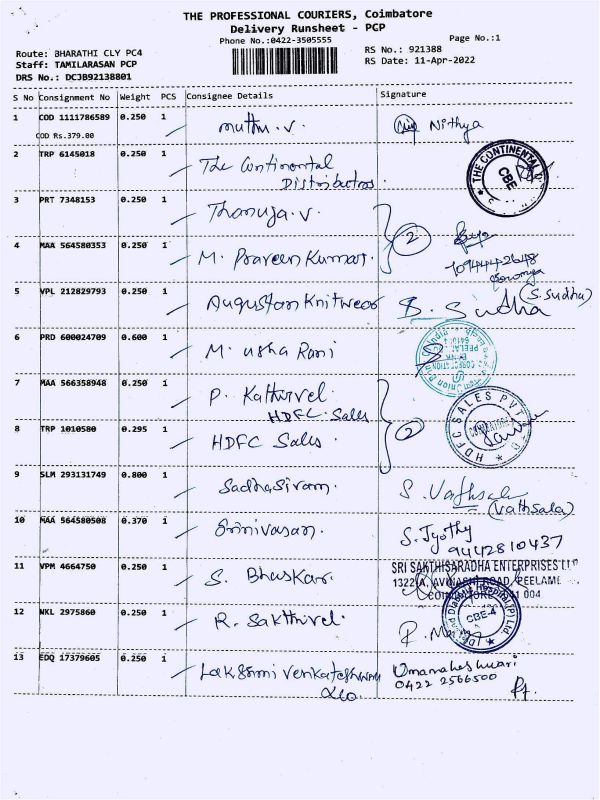 THE PROFESSIONAL COURIERS, Coimbatore
Delivery Runsheet - PCP
Phone No.:0422-3505555
Page No.:1
Route: BHARATHI CLY PC4
RS No.: 921388
Staff: TAMILARASAN PCP
RS Date: 11-Apr-2022
DRS No.: DCJB92138801
S No Consignment No Weight PCS Consignee Details Signature
1 COD 1111786589 0.250 1 muthu.v. Nithya
COD Rs.379.00
2 TRP 6145018 0.250 1 The Continental THE CONTINENTAL
Distributors. CBE
3 PRT 7348153 0.250 1 Thanuja.v. 2
4 MAA 564580353 0.250 1 M. Praveen Kumar.
Sowmya
5 VPL 212829793 0.250 1 Augustan Knitwear S. Sudha (S. Sudha)
6 PRD 600024709 0.600 1 M. usha Rani
7 MAA 566358948 0.250 1 P. Kathirvel.
HDFC Sales
8 TRP 1010580 0.295 1 HDFC Sales. 2 HDFC SALES PVT
9 SLM 293131749 0.800 1 Sadhasivam. S. Vathsala
(Vathsala)
10 MAA 564580508 0.370 1 Srinivasan. S. Jyothy
9442810437
11 VPM 4664750 0.250 1 S. Bhaskar. SRI SAKTHISARADHA ENTERPRISES LLP
1322/A, AVINASHI ROAD, PEELAME
COIMBATORE 641 004
12 NKL 2975860 0.250 1 R. Sakthivel. CBE-4
13 EDQ 17379605 0.250 1 Lakshmi Venkateshwara Umamaheshwari
0422 2566500